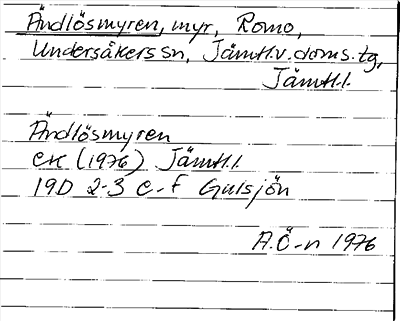 Ändlösmyren, myr, Romo,
Undersåkers sn, Jämtl.v.doms.tg,
Jämtl.l.
Ändlösmyren
ek (1976) Jämtl.l.
19D 2-3 e-f Gulsjön
A.Ö-n 1976